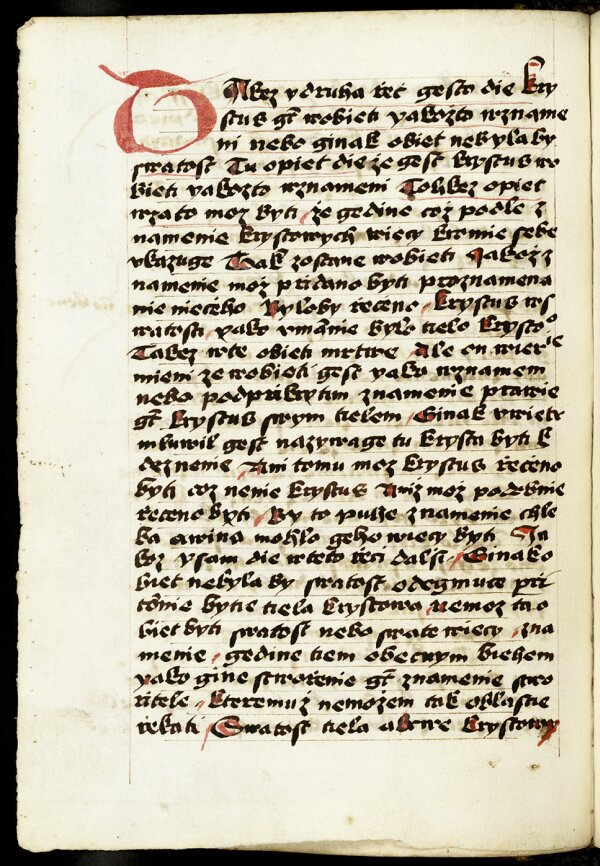 Takez y druha řeč gesto die kry
stus gt wobieti yakožto wzname
ni nebo ginak obiet nebyla by
swatost Tu opiet die že gest krystus wo
bieti yakozto wznameni Tohkez opiet
wzato moz byti / že gedine což podle z
namenie krystowych wiecy kromie sebe
vkazuge Tak zostane wobieti Jakožz
namenie mož přidano byti proznamena
nie niečeho Byloby řečeno / krystus ws
watosti / yako vmannie bylo tielo krysto°
Takez wte obieti mrtwe / Ale on wieř
mieni že wobieti gest yako wznamem
nebo podprikrytim znamenie prawie
gt krystus swym tielem / Ginak vwietr
mluwil gest nazywage tu krysta byti k
dez nenie / Ani tomu moz krystus řečeno
byti coz nenie krystus Aniž mož podobnie
řečeno byti / By to puhe znamenie chle
ba a wina mohlo geho wiecy byti Ja
koz y sam die wteto řeči dalsi / Ginako
biet nebyla by swatost odegmuce při
tomnie bytie tiela krystowa / nemoz ta o
biet byti swatost nebo swate wiecy / zna
menie / gedine tiem obecnym biehem
yako gine stworenie gt znamenie stwo
ritele / kteremuž nemožem tak oblastie
rekati / Swatost tiela a krwe krystowy